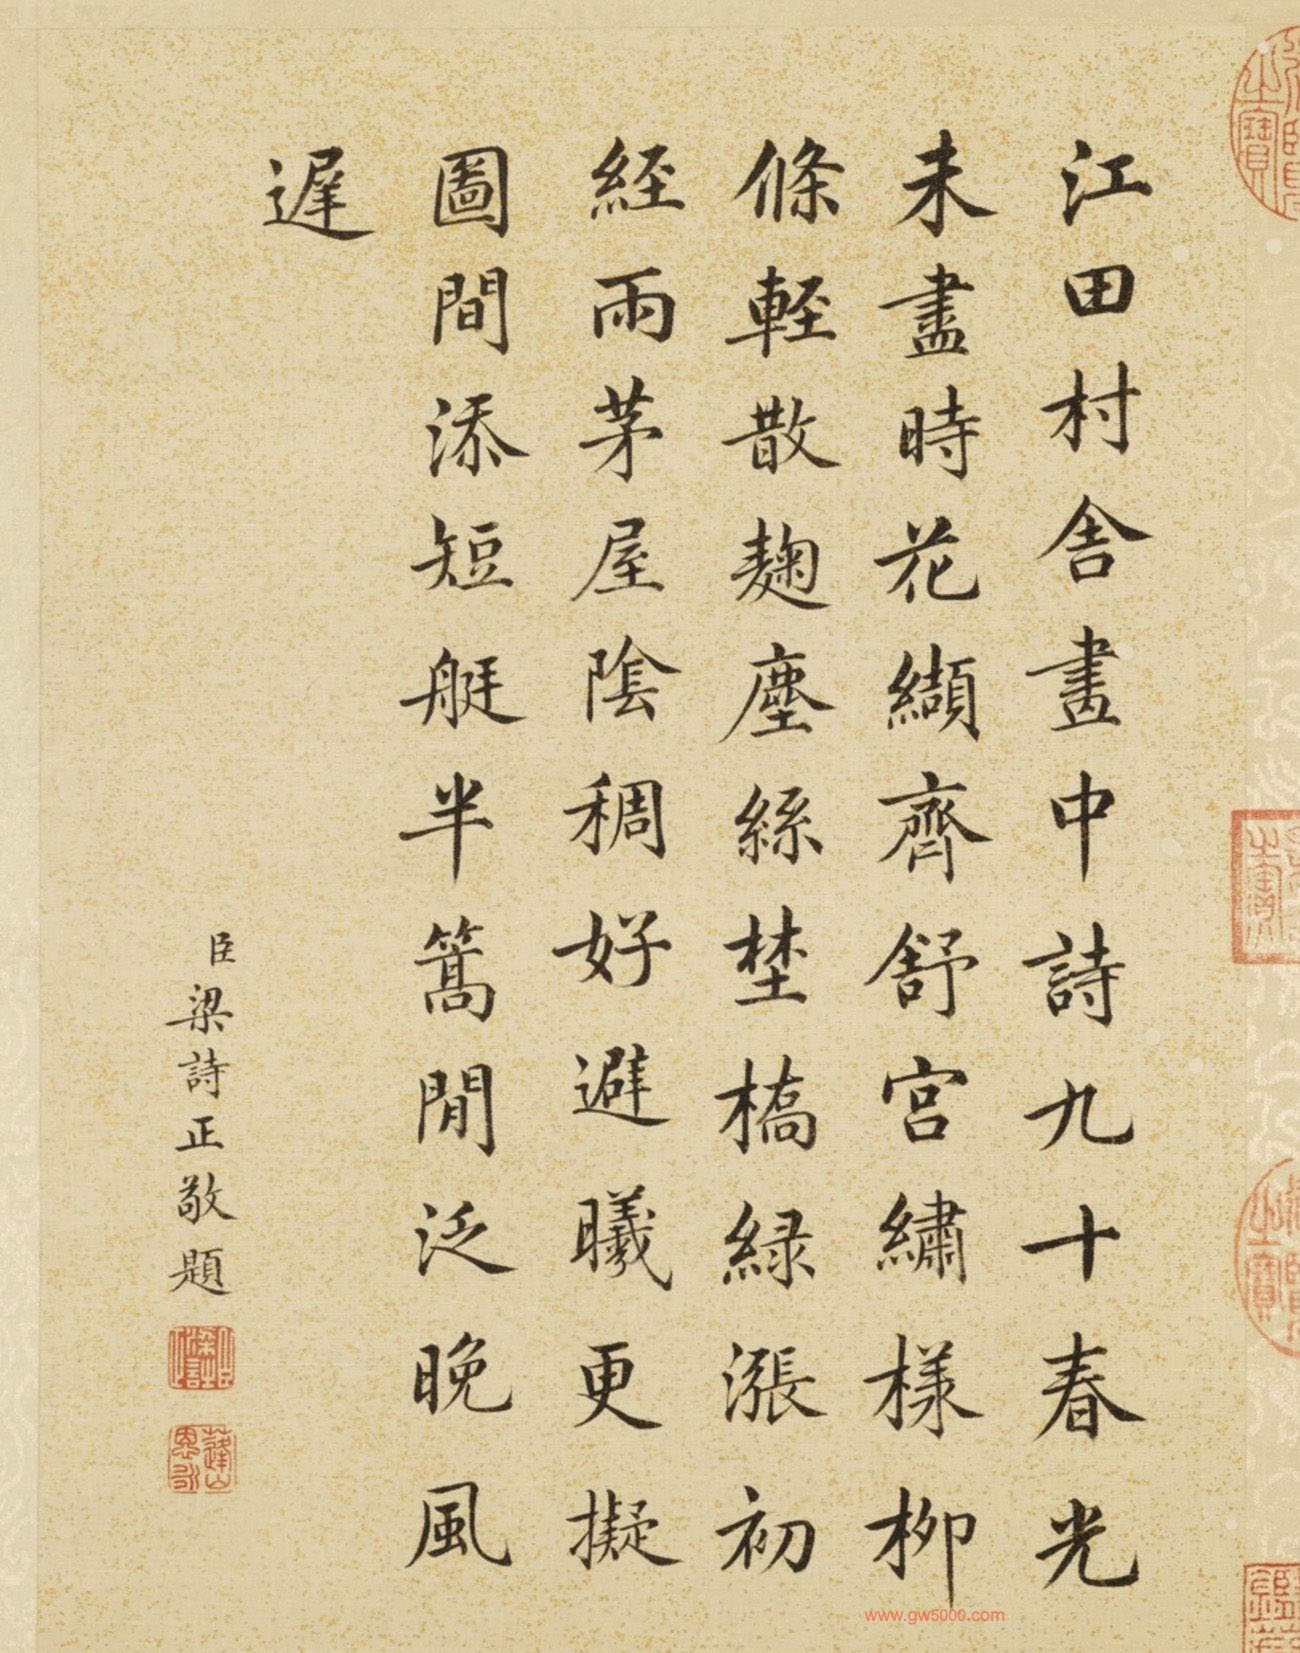 江田村舎畫中詩九十春光
未盡時花纈齊舒宮繡様柳
條軽散麹塵絲埜橋緑漲初
経雨茅屋陰稠好避曦更擬
圖間添短艇半篙閒泛晚風
遲
臣梁詩正敬題
www.gw5000.com